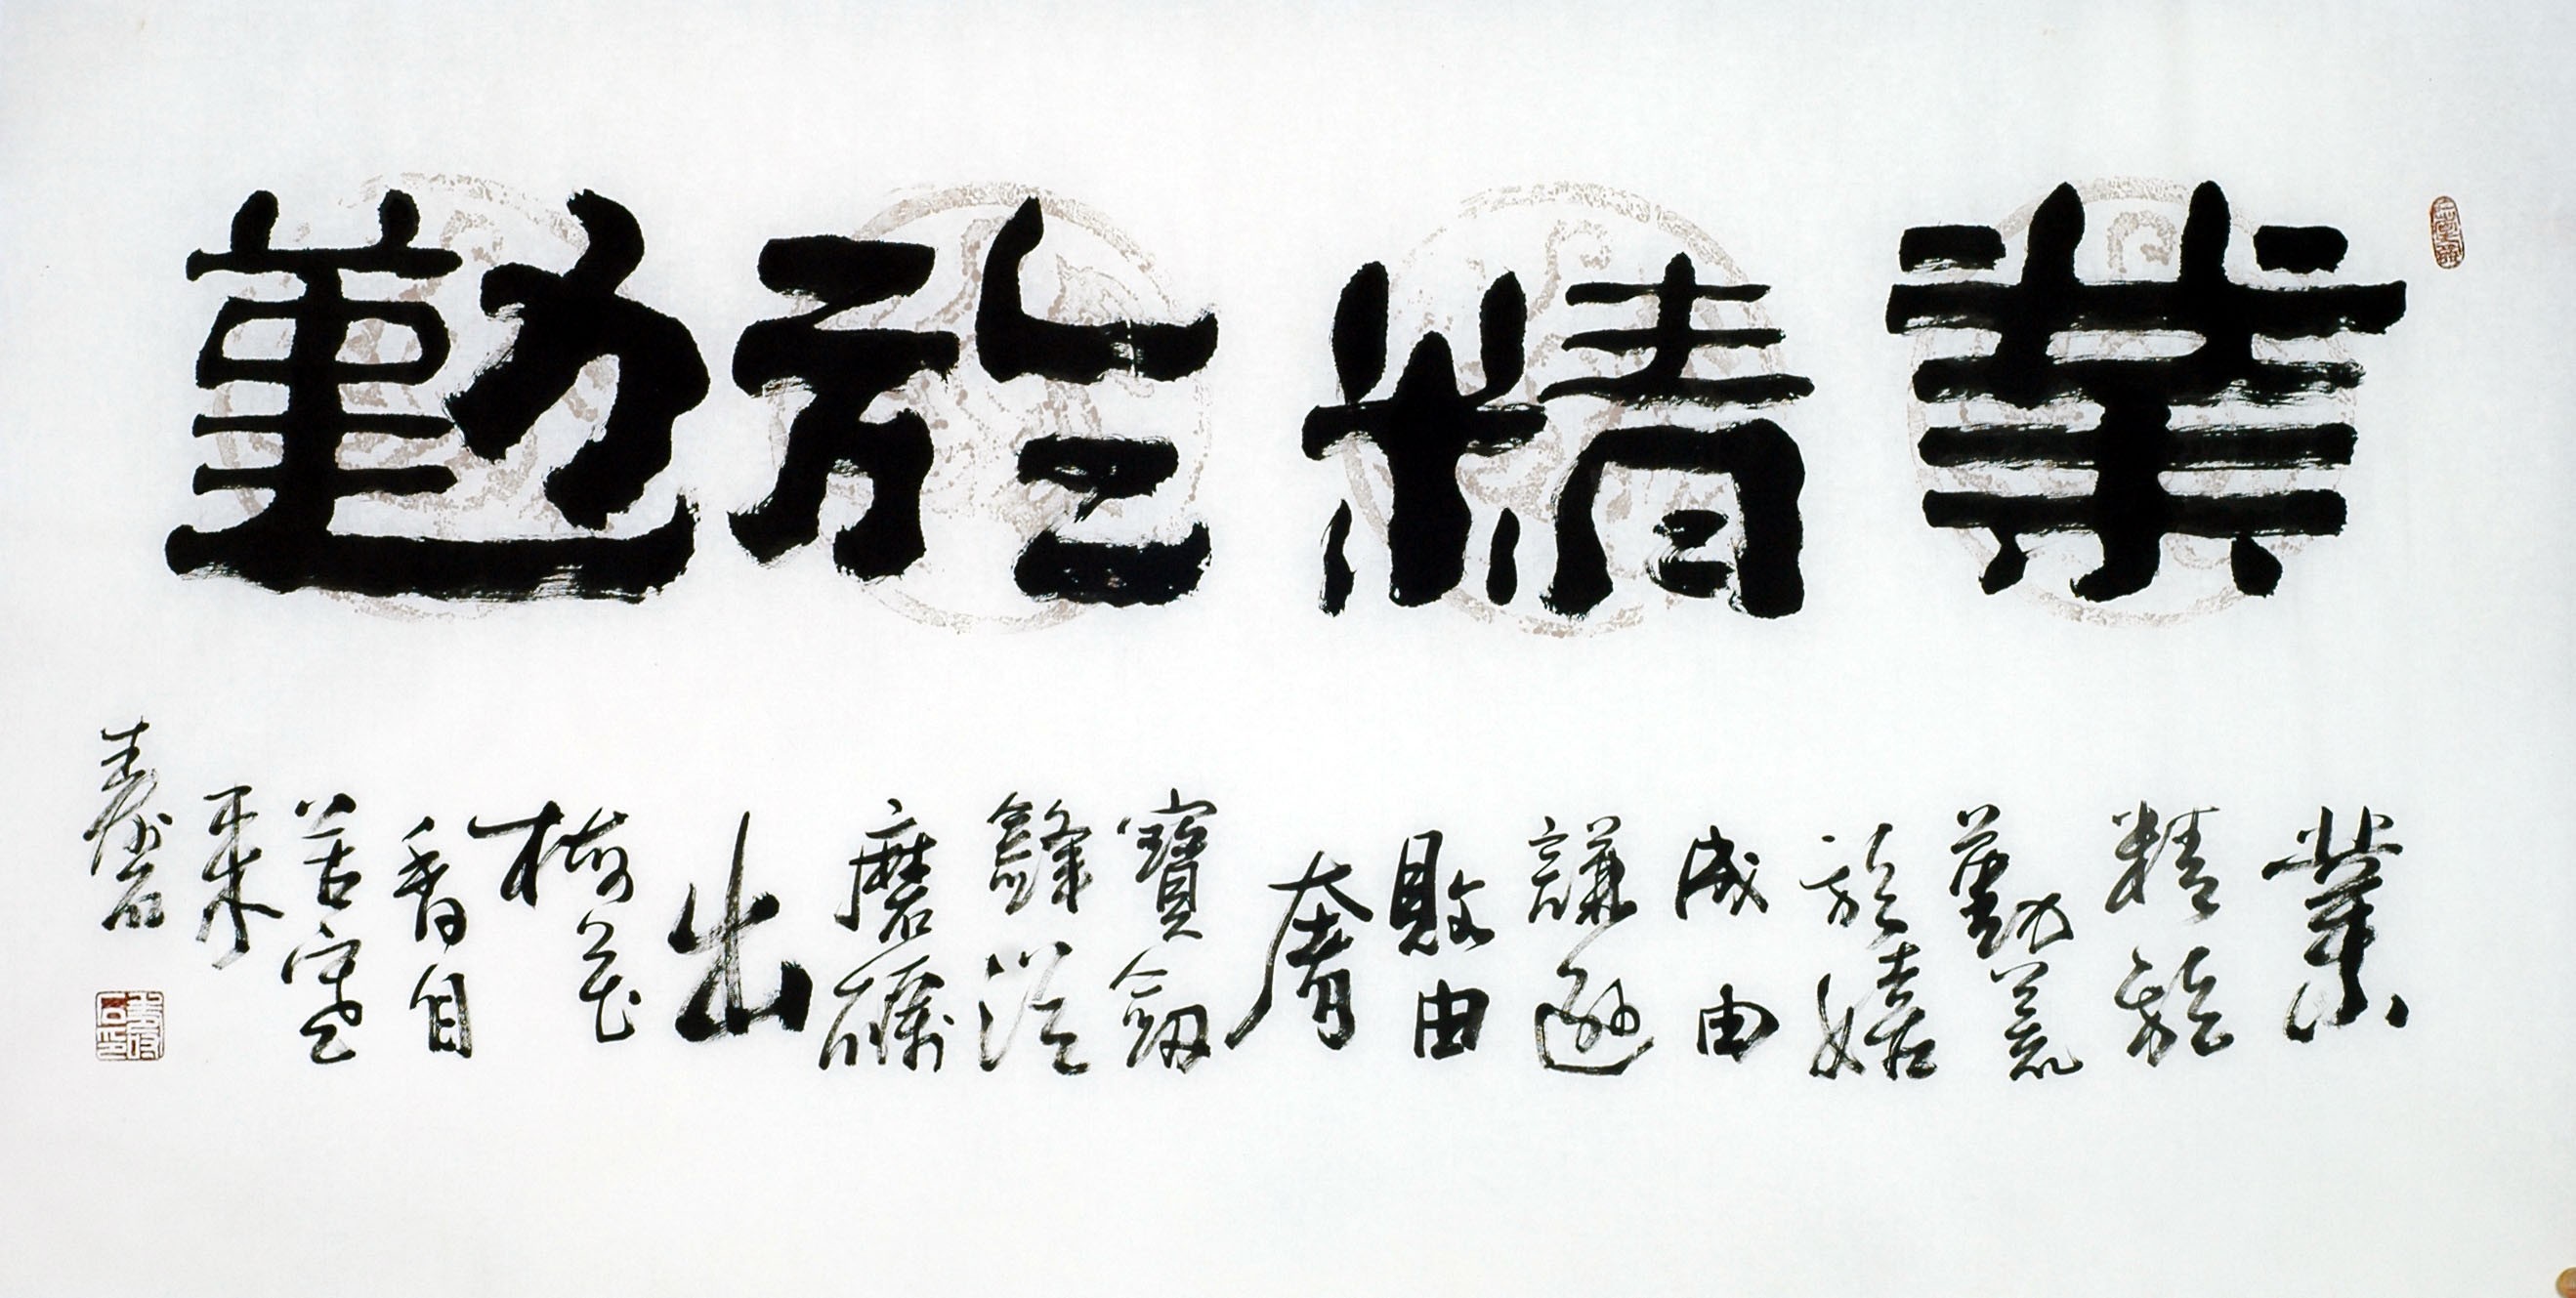 業精於勤
業
精於
勤荒
於嬉
成由
謙遜
敗由
奢
寶劍
鋒從
磨礪
出
梅花
香自
苦寒
來